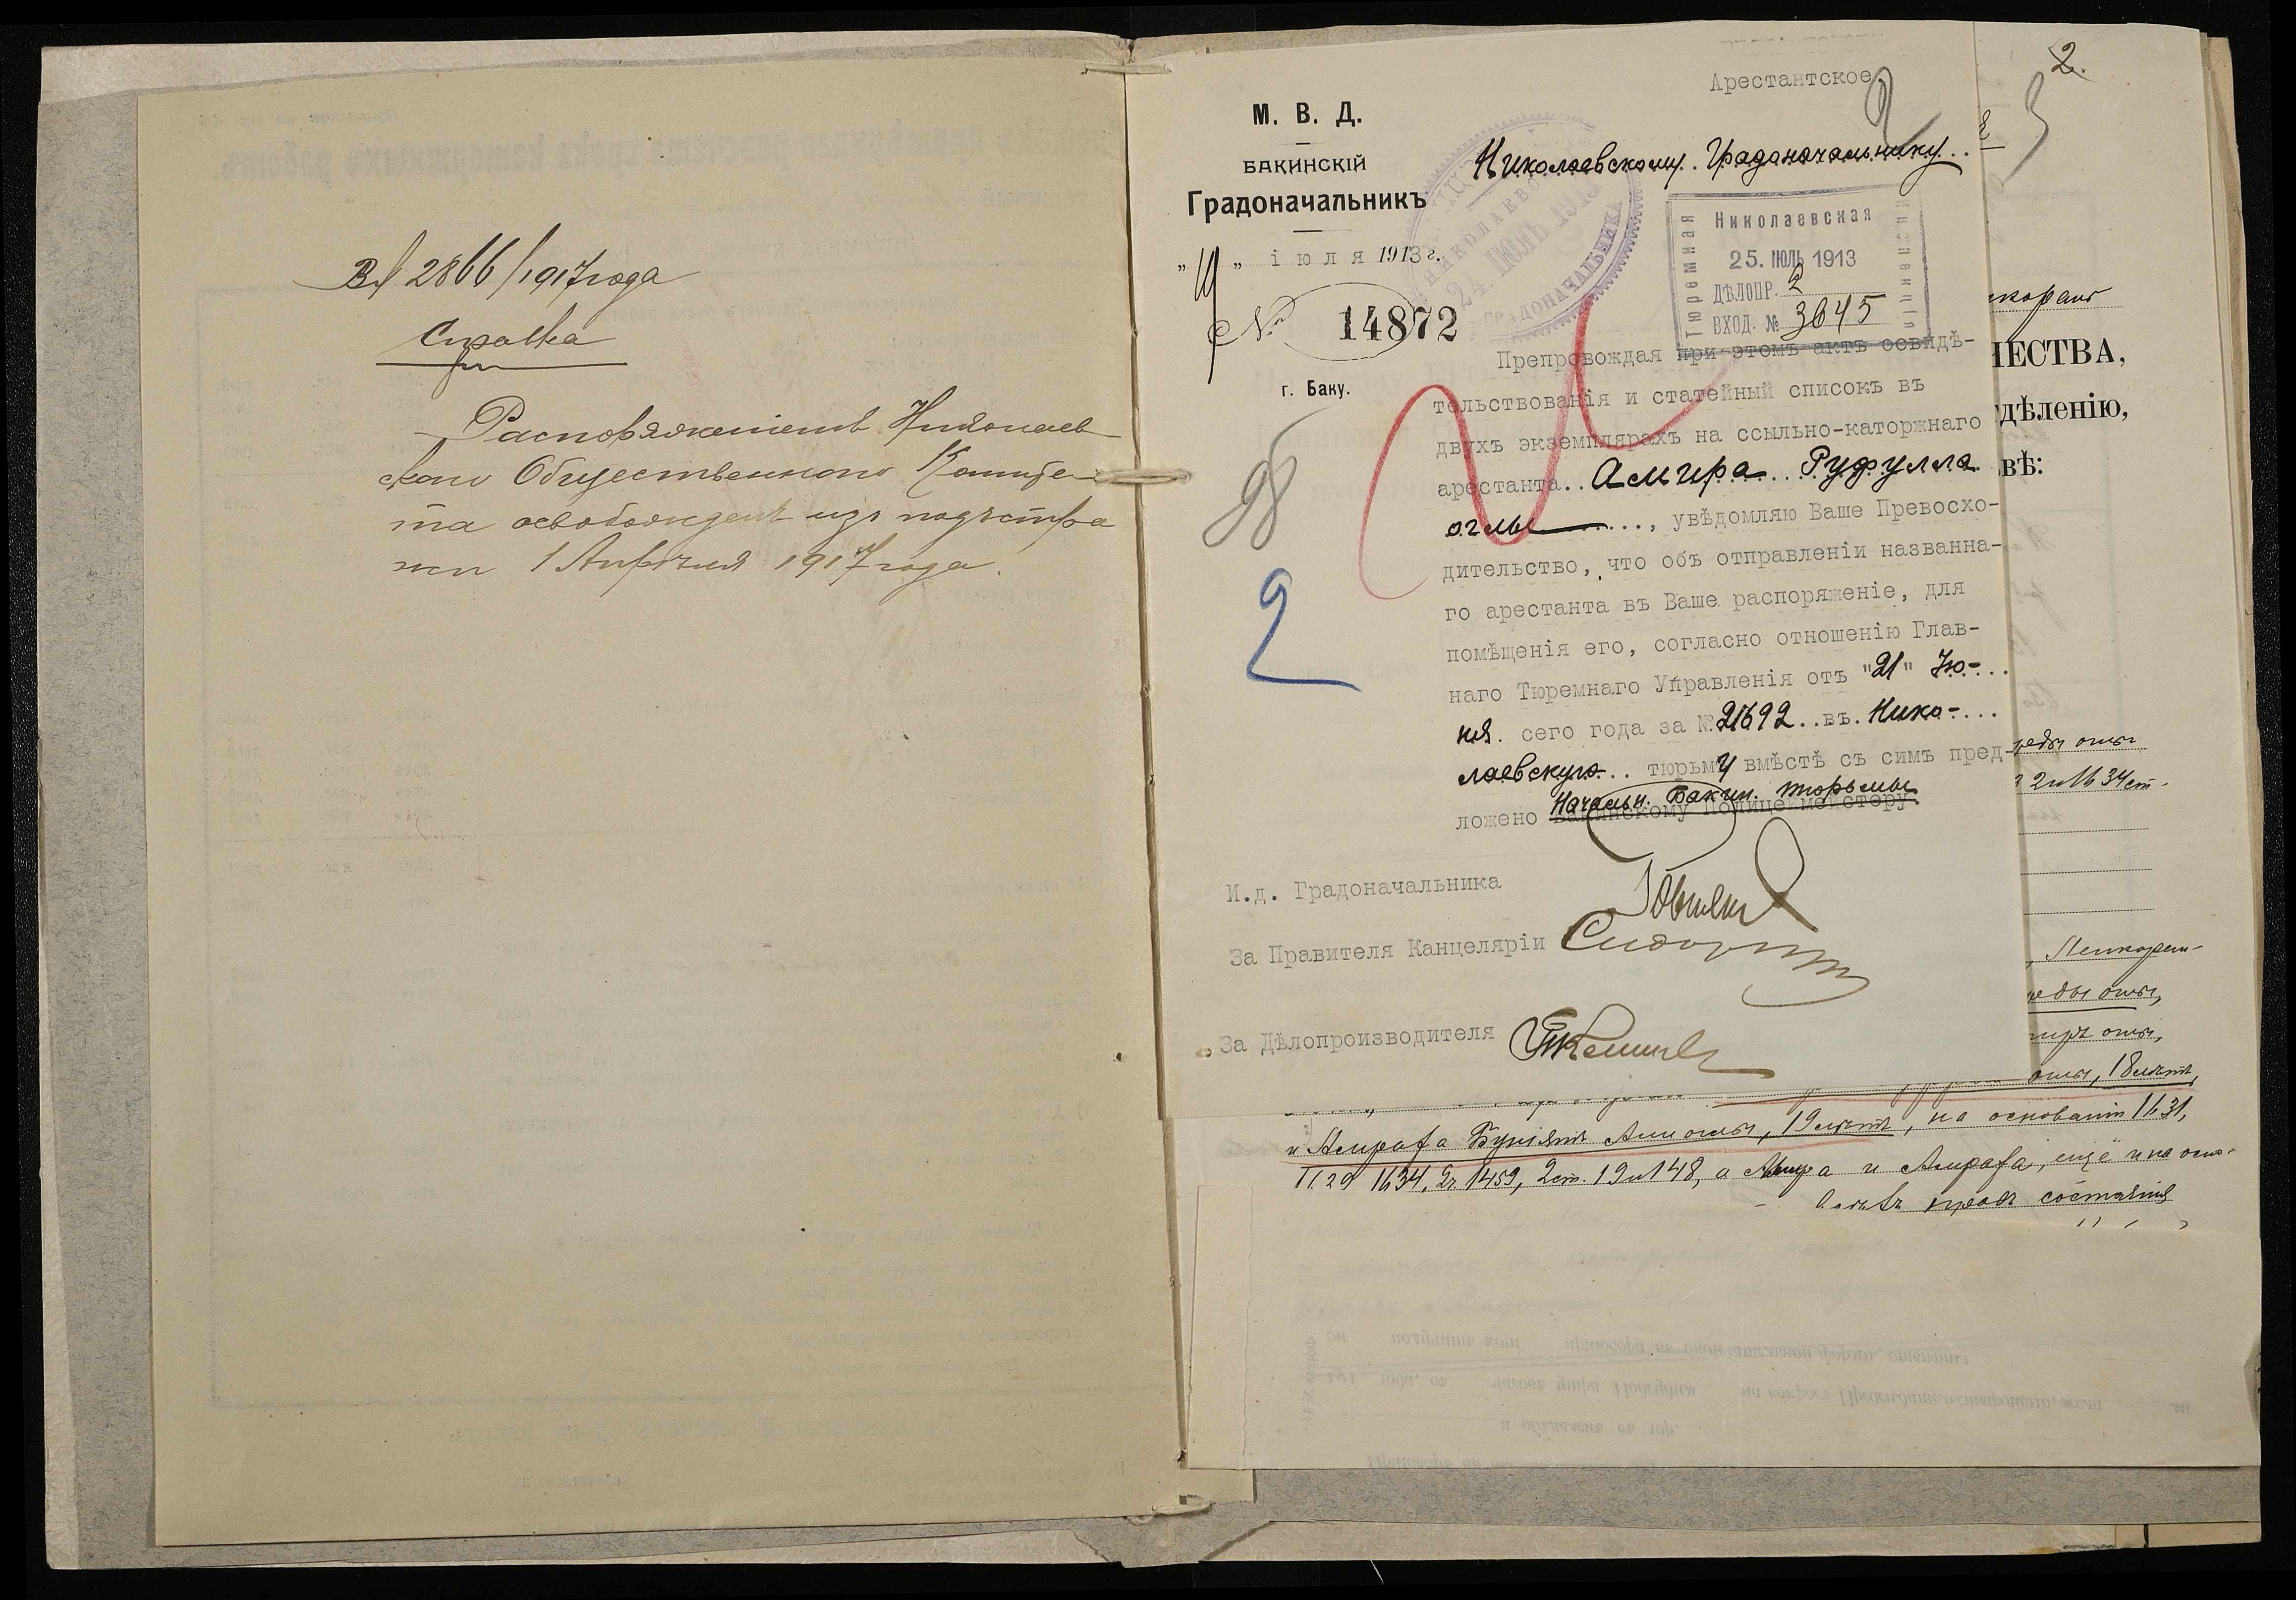 Вх 2866/1917 года
Справка
Распоряженiемъ Николаев
скаго Общественнаго Комите
та освобожденъ изъ подъ стра
жи 1 Апрѣля 1917 года.
Арестантское
М. В. Д.
БАКИНСКІЙ
Градоначальникъ
Николаевскому Градоначальнику
іюля 1913 г.
№ 14872
г. Баку.
НИКОЛАЕВСК
24. ІЮЛЬ 1913
ГРАДОНАЧАЛЬНИКА
Николаевская
Тюремная
Инспекція
25. ІЮЛЬ 1913
ДѢЛОПР. 2
ВХОД. № 3645
Препровождая при этомъ актъ освидѣ-
тельствованія и статейный списокъ въ
двухъ экземплярахъ на ссыльно-каторжнаго
арестанта.. Амира ... Руфулла
оглы ..., увѣдомляю Ваше Превосхо-
дительство, что объ отправленіи названна-
го арестанта въ Ваше распоряженіе, для
помѣщенія его, согласно отношенію Глав-
наго Тюремнаго Управленія отъ "21" Ію-...
ня. сего года за №21692..въ. Нико-....
лаевскую... тюрьму вмѣстѣ съ симъ пред-
Начальн. Бакин. тюрьмы
ложено Бакинскому Полицеймейстеру
И.д. Градоначальника
За Правителя Канцеляріи
За Дѣлопроизводителя
98
2
2.
3
ЧЕСТВА,
дѣленію,
вѣ:
2 и 1634 ст.
, Ленкоран-
оглы,
оглы,
оглы, 18 лѣтъ,
и Ашрафа Буніятъ Али оглы, 19 лѣтъ, на основаніи 1631,
1634, 2ч. 1459, 2 ст. 19 и 148, а Амира и Ашрафа, еще и на осно-
правъ состоянія